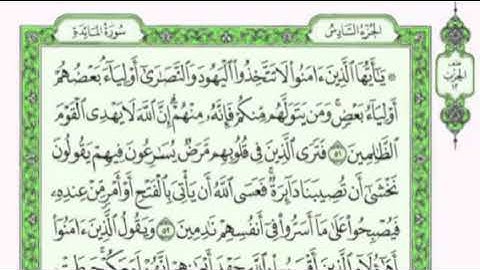 الجُزْءُ السَّادِسُ
سُورَةُ المَائِدَةِ
الحِزْب
١٢
۞ يَٰٓأَيُّهَا ٱلَّذِينَ ءَامَنُوا۟ لَا تَتَّخِذُوا۟ ٱلْيَهُودَ وَٱلنَّصَٰرَىٰٓ أَوْلِيَآءَ بَعْضُهُمْ
أَوْلِيَآءُ بَعْضٍ ۚ وَمَن يَتَوَلَّهُم مِّنكُمْ فَإِنَّهُۥ مِنْهُمْ ۗ إِنَّ ٱللَّهَ لَا يَهْدِى ٱلْقَوْمَ
ٱلظَّٰلِمِينَ ٥١ فَتَرَى ٱلَّذِينَ فِى قُلُوبِهِم مَّرَضٌ يُسَٰرِعُونَ فِيهِمْ يَقُولُونَ
نَخْشَىٰٓ أَن تُصِيبَنَا دَآئِرَةٌ ۚ فَعَسَى ٱللَّهُ أَن يَأْتِىَ بِٱلْفَتْحِ أَوْ أَمْرٍ مِّنْ عِندِهِۦ
فَيُصْبِحُوا۟ عَلَىٰ مَآ أَسَرُّوا۟ فِىٓ أَنفُسِهِمْ نَٰدِمِينَ ٥٢ وَيَقُولُ ٱلَّذِينَ ءَامَنُوٓا۟
أَهَٰٓؤُلَآءِ ٱلَّذِينَ أَقْسَمُوا۟ بِٱللَّهِ جَهْدَ أَيْمَٰنِهِمْ ۙ إِنَّهُمْ لَمَعَكُمْ ۚ حَبِطَتْ